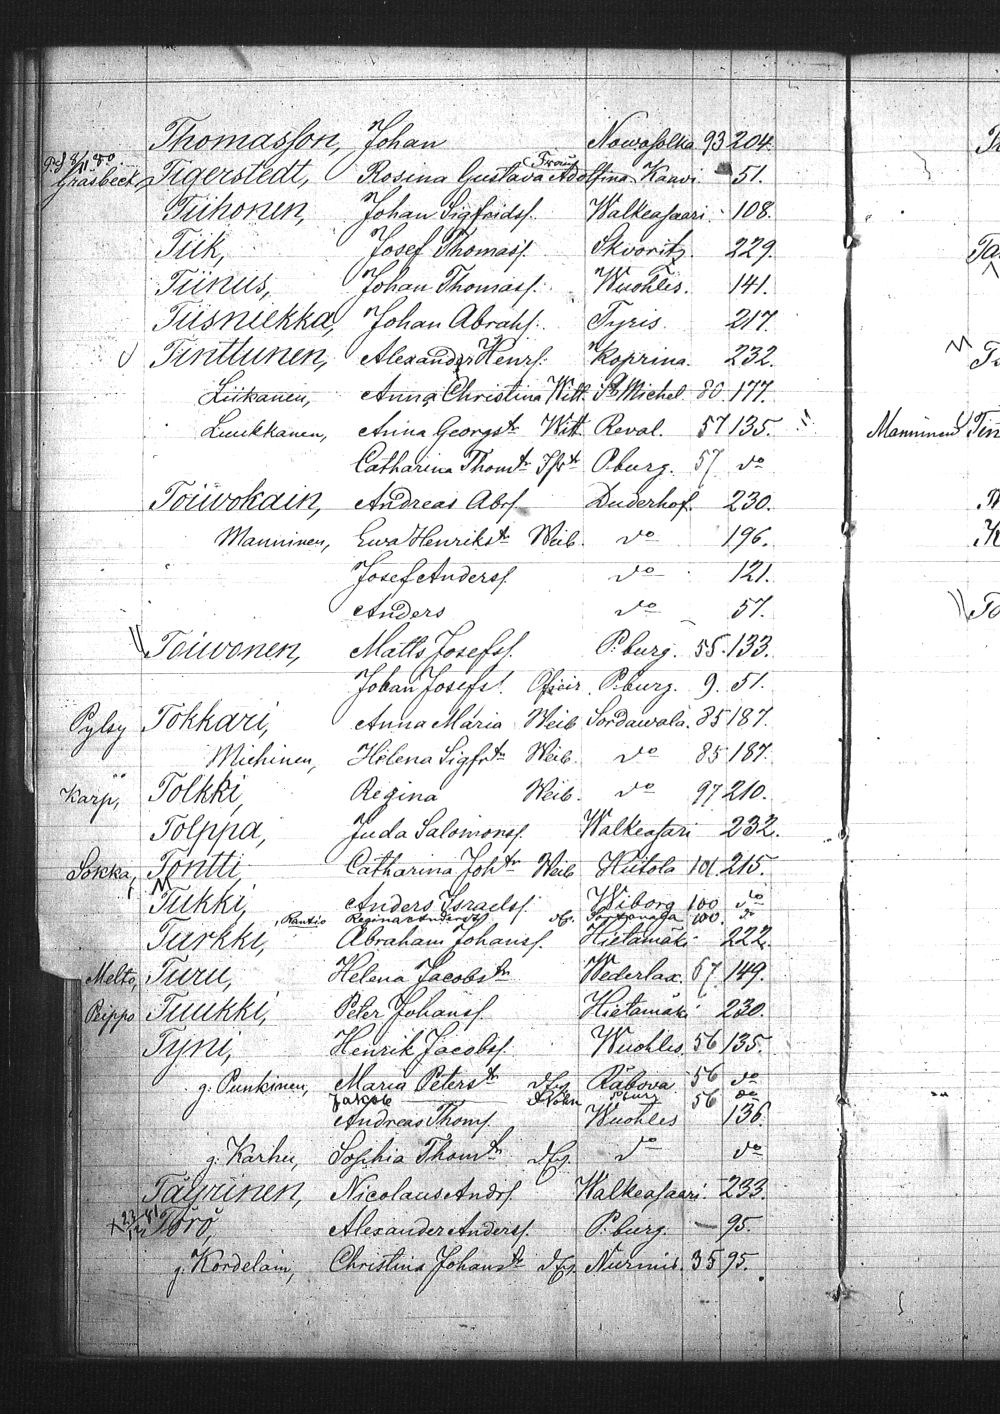 Thomasson, Johan Nowasolka 93 204.
Fraus
Gräsbeck, Tigerstedt, Rosina Gustava Adolfina Kaavi - 51.
Tiihonen, Johan Sigfridss. Walkeasaari - 108.
Tiik, Josef Thomass. Skvoritz. 229.
Tiinus, Johan Thomass. Wuohles. 141.
Tiisniekka, Johan Abrahs. Tyris. 217.
Tinttunen, Alexander Henrs. Koprina. 232.
Liikanen, Anna Christina Witt. St Michel 80. 177.
Luukkanen, Anna Georgstr Witt. Reval. 57 135.
Catharina Thomtr P.burg. 57 do
Toiwokain, Andreas Abrs. Duderhof. 230.
Manninen, Ewa Henrikstr Weib. do 196.
Josef Anderss. do 121.
Anders do 57.
Toiwonen, Matts Josefss. P.burg. 55. 133.
Johan Josefs. P.burg. 9. 51.
Pylsy Tokkari, Anna Maria Weib Sordawala. 85 187.
Miehinen, Helena Sigfrtr Weib. do 85 187.
Karp, Tolkki, Regina Weib. do 97 210.
Tolppa, Juda Salomonss. Walkeasari 232.
Sokka, Tontti, Catharina Johtr Weib Hiitola 101. 215.
Tukki, Anders Israelss. Wiborg 100 do
Rantio Regina Anderstr 100. do
Turkki, Abraham Johanss. Hietamäki 222.
Melto, Turu, Helena Jacobstr Wederlax. 67. 149.
Peippo Tuukki, Peter Johanss. Hietamäki 230.
Tyni, Henrik Jacobss. Wuohles. 56 135.
g. Punkinen, Maria Peterstr Räbova 56 do
Jakob P.burg 56 do
Andreas Thoms. Wuohles 136.
g. Karhu, Sophia Thomtr do do
Täyrinen, Nicolaus Andrs. Walkeasaari. 233
Törö, Alexander Anderss. P.burg. — 95.
g. Kordelain, Christina Johanstr Nurmis. 35 95.
Manninen